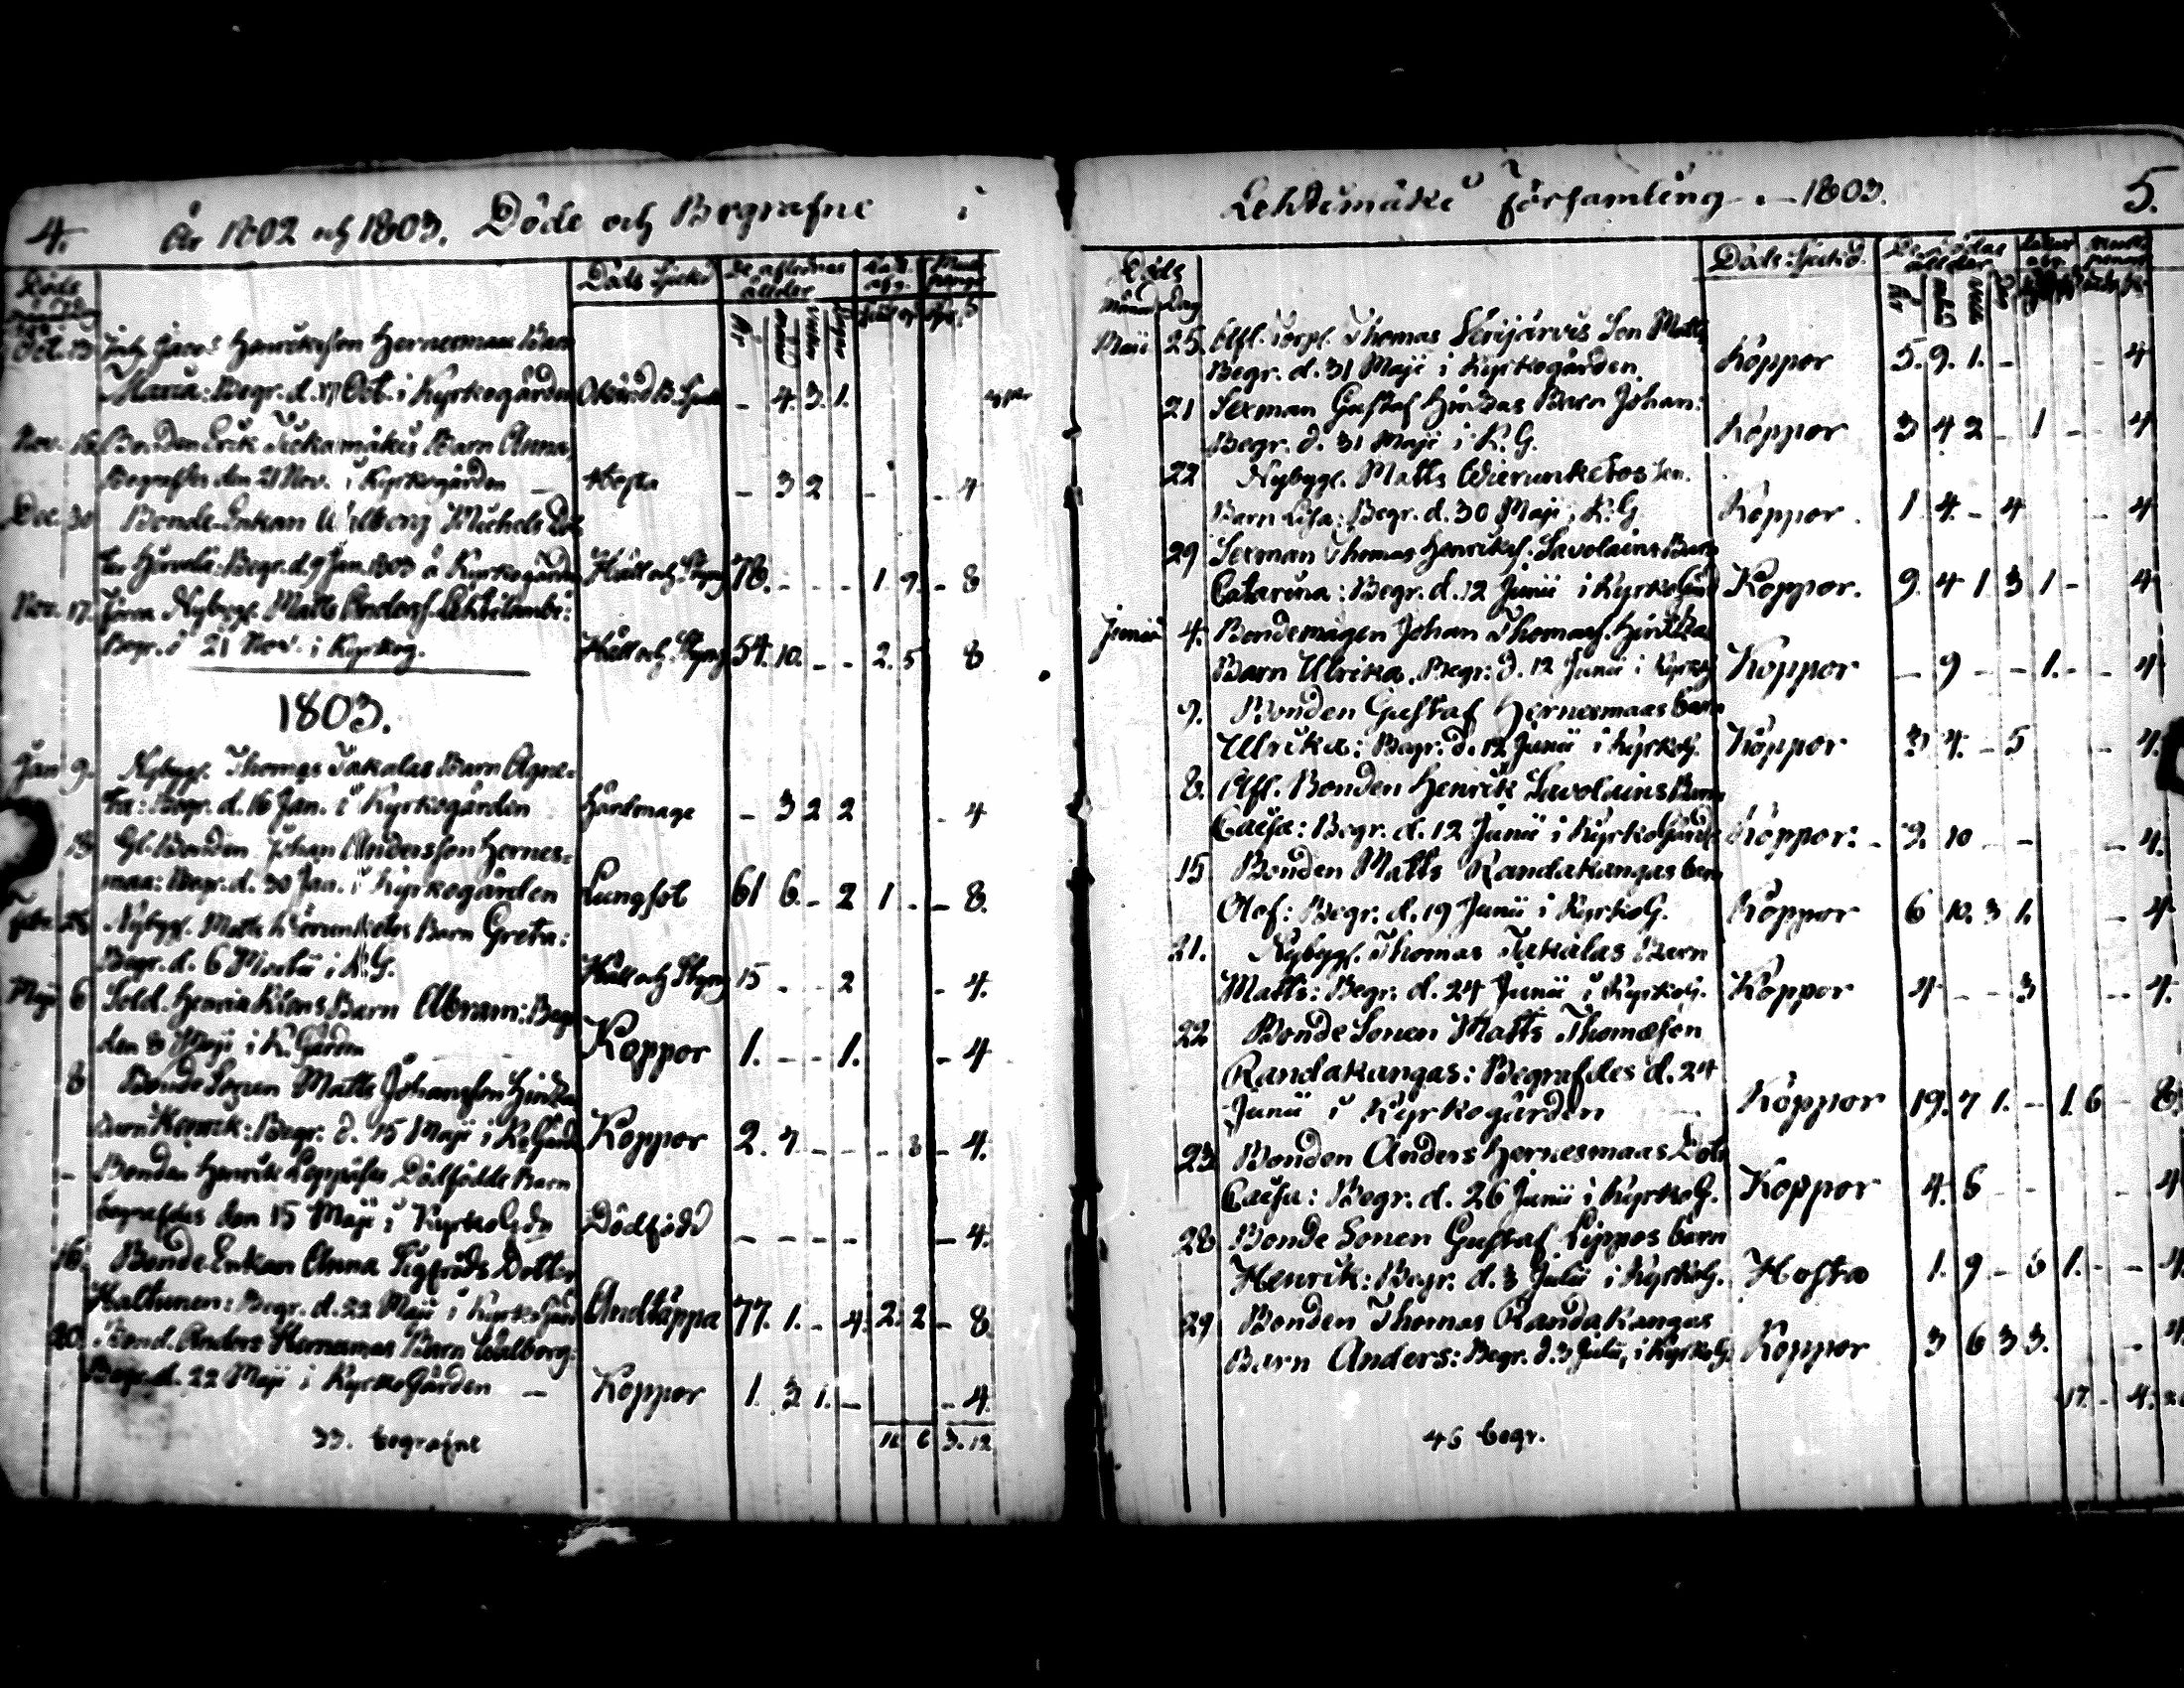 4. År 1802 och 1803. Döde och Begrafne i
Döds Döds Siukd. De aflednas ålder
Oct. 13 Jacob Henriksson Hernesmaas Barn
Maria: Begr. d. 17 Oct. i Kyrkogården Okänd B. Siuk - 4. 3. 1.
Nov. 16 Bonden Erik Barn Anna,
Begrafdes den 21 Nov. i Kyrkogården — Hosta - 3 2 - - 4
Dec. 30 Bonde Enkan Walborg Michels Dot
ter Begr. d. 9 Jan. 1803 å Kyrkogården Håll och Styng 78. - - - 1. 9. - 8
Nov. 17. Nybygg. Matts Anderss. Lehtilambi:
Begr. d 21 Nov. i Kyrkog. Håll och Styng 54. 10. - - 2. 5 8
1803.
Jan 9. Nybygg. Thomas Takalas Barn Agne-
ta: Begr. d. 16 Jan. i Kyrkogården - 3 2 2 - 4
13 Gl. Bonden Johan Andersson Hernes-
maa: Begr. d. 30 Jan. i Kyrkogården Lungsot 61 6. - 2 1 - - 8.
Febr. 28 Nybygg. Matts Barn Greta:
Begr. d. 6 Martii i K. G. Håll och Styng 15 - - 2 - 4.
Maji 6 Sold. Henrik Kiens Barn Abram: Begr
den 8 Maji i K. Gården Koppor 1. - - 1. - 4
8 Bonde Sonen Matts Johansson Hinkka
barn Henrik: Begr. d. 15 Maji i K. Gård Koppor 2. 7. - - - 8 - 4.
- Bonden Henrik Dödfödde Barn
begrafdes den 15 Maji i KyrkoGdn Dödfödd - - - - - 4.
16. Bonde Enkan Anna Sigfrids Dotter
Haltunen: Begr. d. 22 Maji i KyrkoGård Andtäppa 77. 1. - 4. 2. 2 - 8.
20. Bond. Anders Hernesmas Barn Walborg:
Begr. d. 22 Maji i KyrkoGården — Koppor 1. 3 1. - - 4.
33. begrafne 3. 12
Lehtimäki Församling — 1803. 5.
Döds Döds Siukd. De Dödas ålder
Månad Dag
Maii 25. Afl. Torp. Thomas Son Matts
Begr. d. 31 Maji i Kyrkogården. Koppor 5. 9. 1. - - 4
21 Sexman Gustaf Hinkkas Barn Johan:
Begr. d. 31 Maji i K. G. Koppor 3 4 2 - 1 - 4
22 Nybygg. Matts
Barn Lisa: Begr. d. 30 Maji i K. G. Koppor. 1. 4. - 4 - 4
29 Sexman Thomas Henriks. Savolains Barn
Catarina: Begr. d. 12 Junii i KyrkoGård Koppor. 9. 4 1. 3 1 - 4
Junii 4. Bondemågen Johan Thomass. Hinkkas
Barn Ulrika, Begr: d. 12 Junii i Kyrkog Koppor - 9 - - 1. - - 4
9. Bonden Gustaf Hernesmaas barn
Ulrika: Begr. d. 12 Junii i KyrkoG. Koppor 3 4. - 5 - 4.
8. Afl. Bonden Henrik Savolains Barn
Caisa: Begr. d. 12 Junii i KyrkoGården Koppor: - 2. 10 - - - 4.
15 Bonden Matts Randakangas barn
Olof: Begr. d. 19 Junii i KyrkoG. Koppor 6 10. 3 1. - 4
21. Nybygg. Thomas Takalas Barn
Matts: Begr. d. 24 Junii i KyrkoG. Koppor 4 - - 3 - 4.
22 Bonde Sonen Matts Thomasson
Randakangas: Begrafdes d. 24
Junii i Kyrkogården Koppor 19. 7 1. - 1. 6 - 8.
23 Bonden Anders Hernesmaas Dott
Caisa: Begr. d. 26 Junii i KyrkoG. Koppor 4. 8 - - 4
28 Bonde Sonen Gustaf Lippos barn
Henrik: Begr. d. 3 Julii i KyrkoG. Hosta 1. 9 - 6 1. - - 4
29 Bonden Thomas Randakangas
Barn Anders: Begr. d. 3 Julii, i KyrkoG. Koppor 3 6 3 3. - 4
17. - 4.
46 begr.